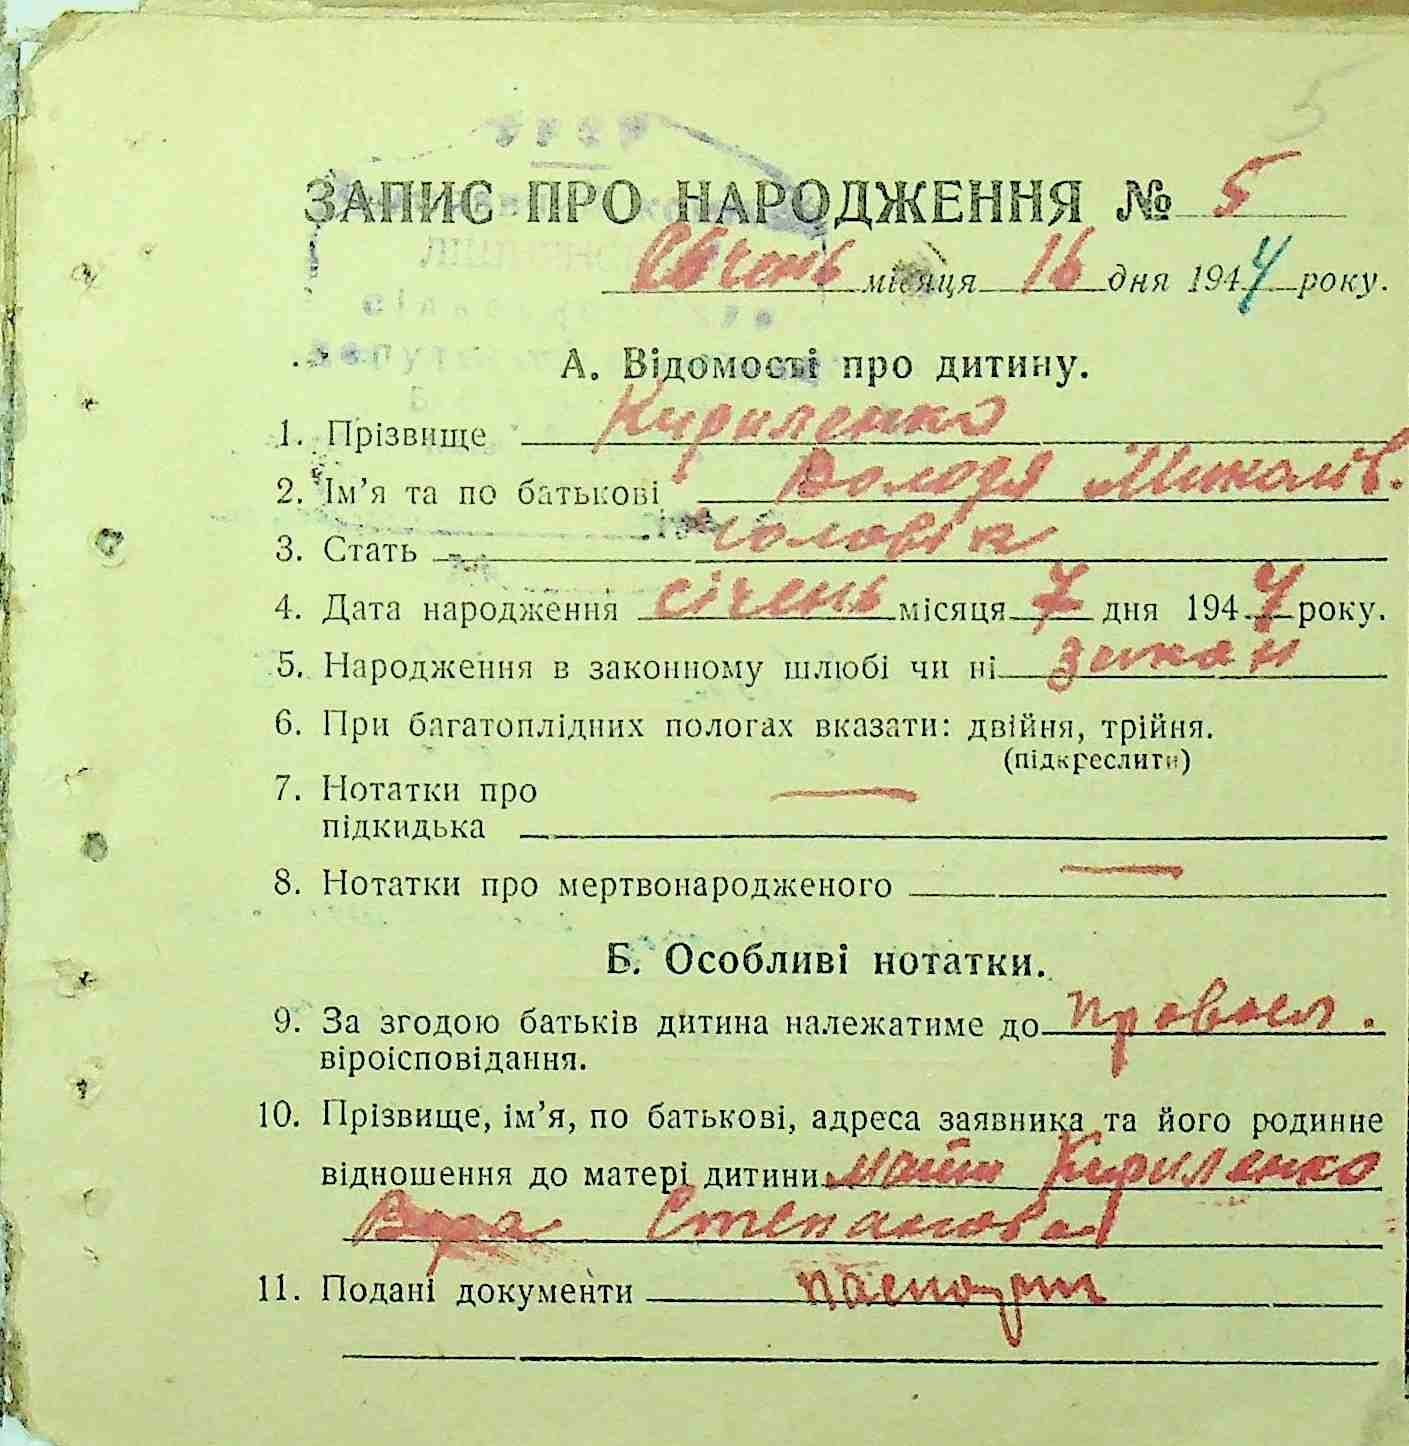 5
ЗАПИС ПРО НАРОДЖЕННЯ № 5
Січень місяця 16 дня 1944 року.
А. Відомості про дитину.
1. Прізвище Кириленко
2. Ім'я та по батькові Володя Миколаїв.
3. Стать чоловік
4. Дата народження січень місяця 7 дня 1944 року.
5. Народження в законному шлюбі чи ні
6. При багатоплідних пологах вказати: двійня, трійня.
(підкреслити)
7. Нотатки про —
підкидька
8. Нотатки про мертвонародженого —
Б. Особливі нотатки.
9. За згодою батьків дитина належатиме до правосл.
віроісповідання.
10. Прізвище, ім'я, по батькові, адреса заявника та його родинне
відношення до матері дитини мати Кириленко
Вера Степановна
11. Подані документи паспорт